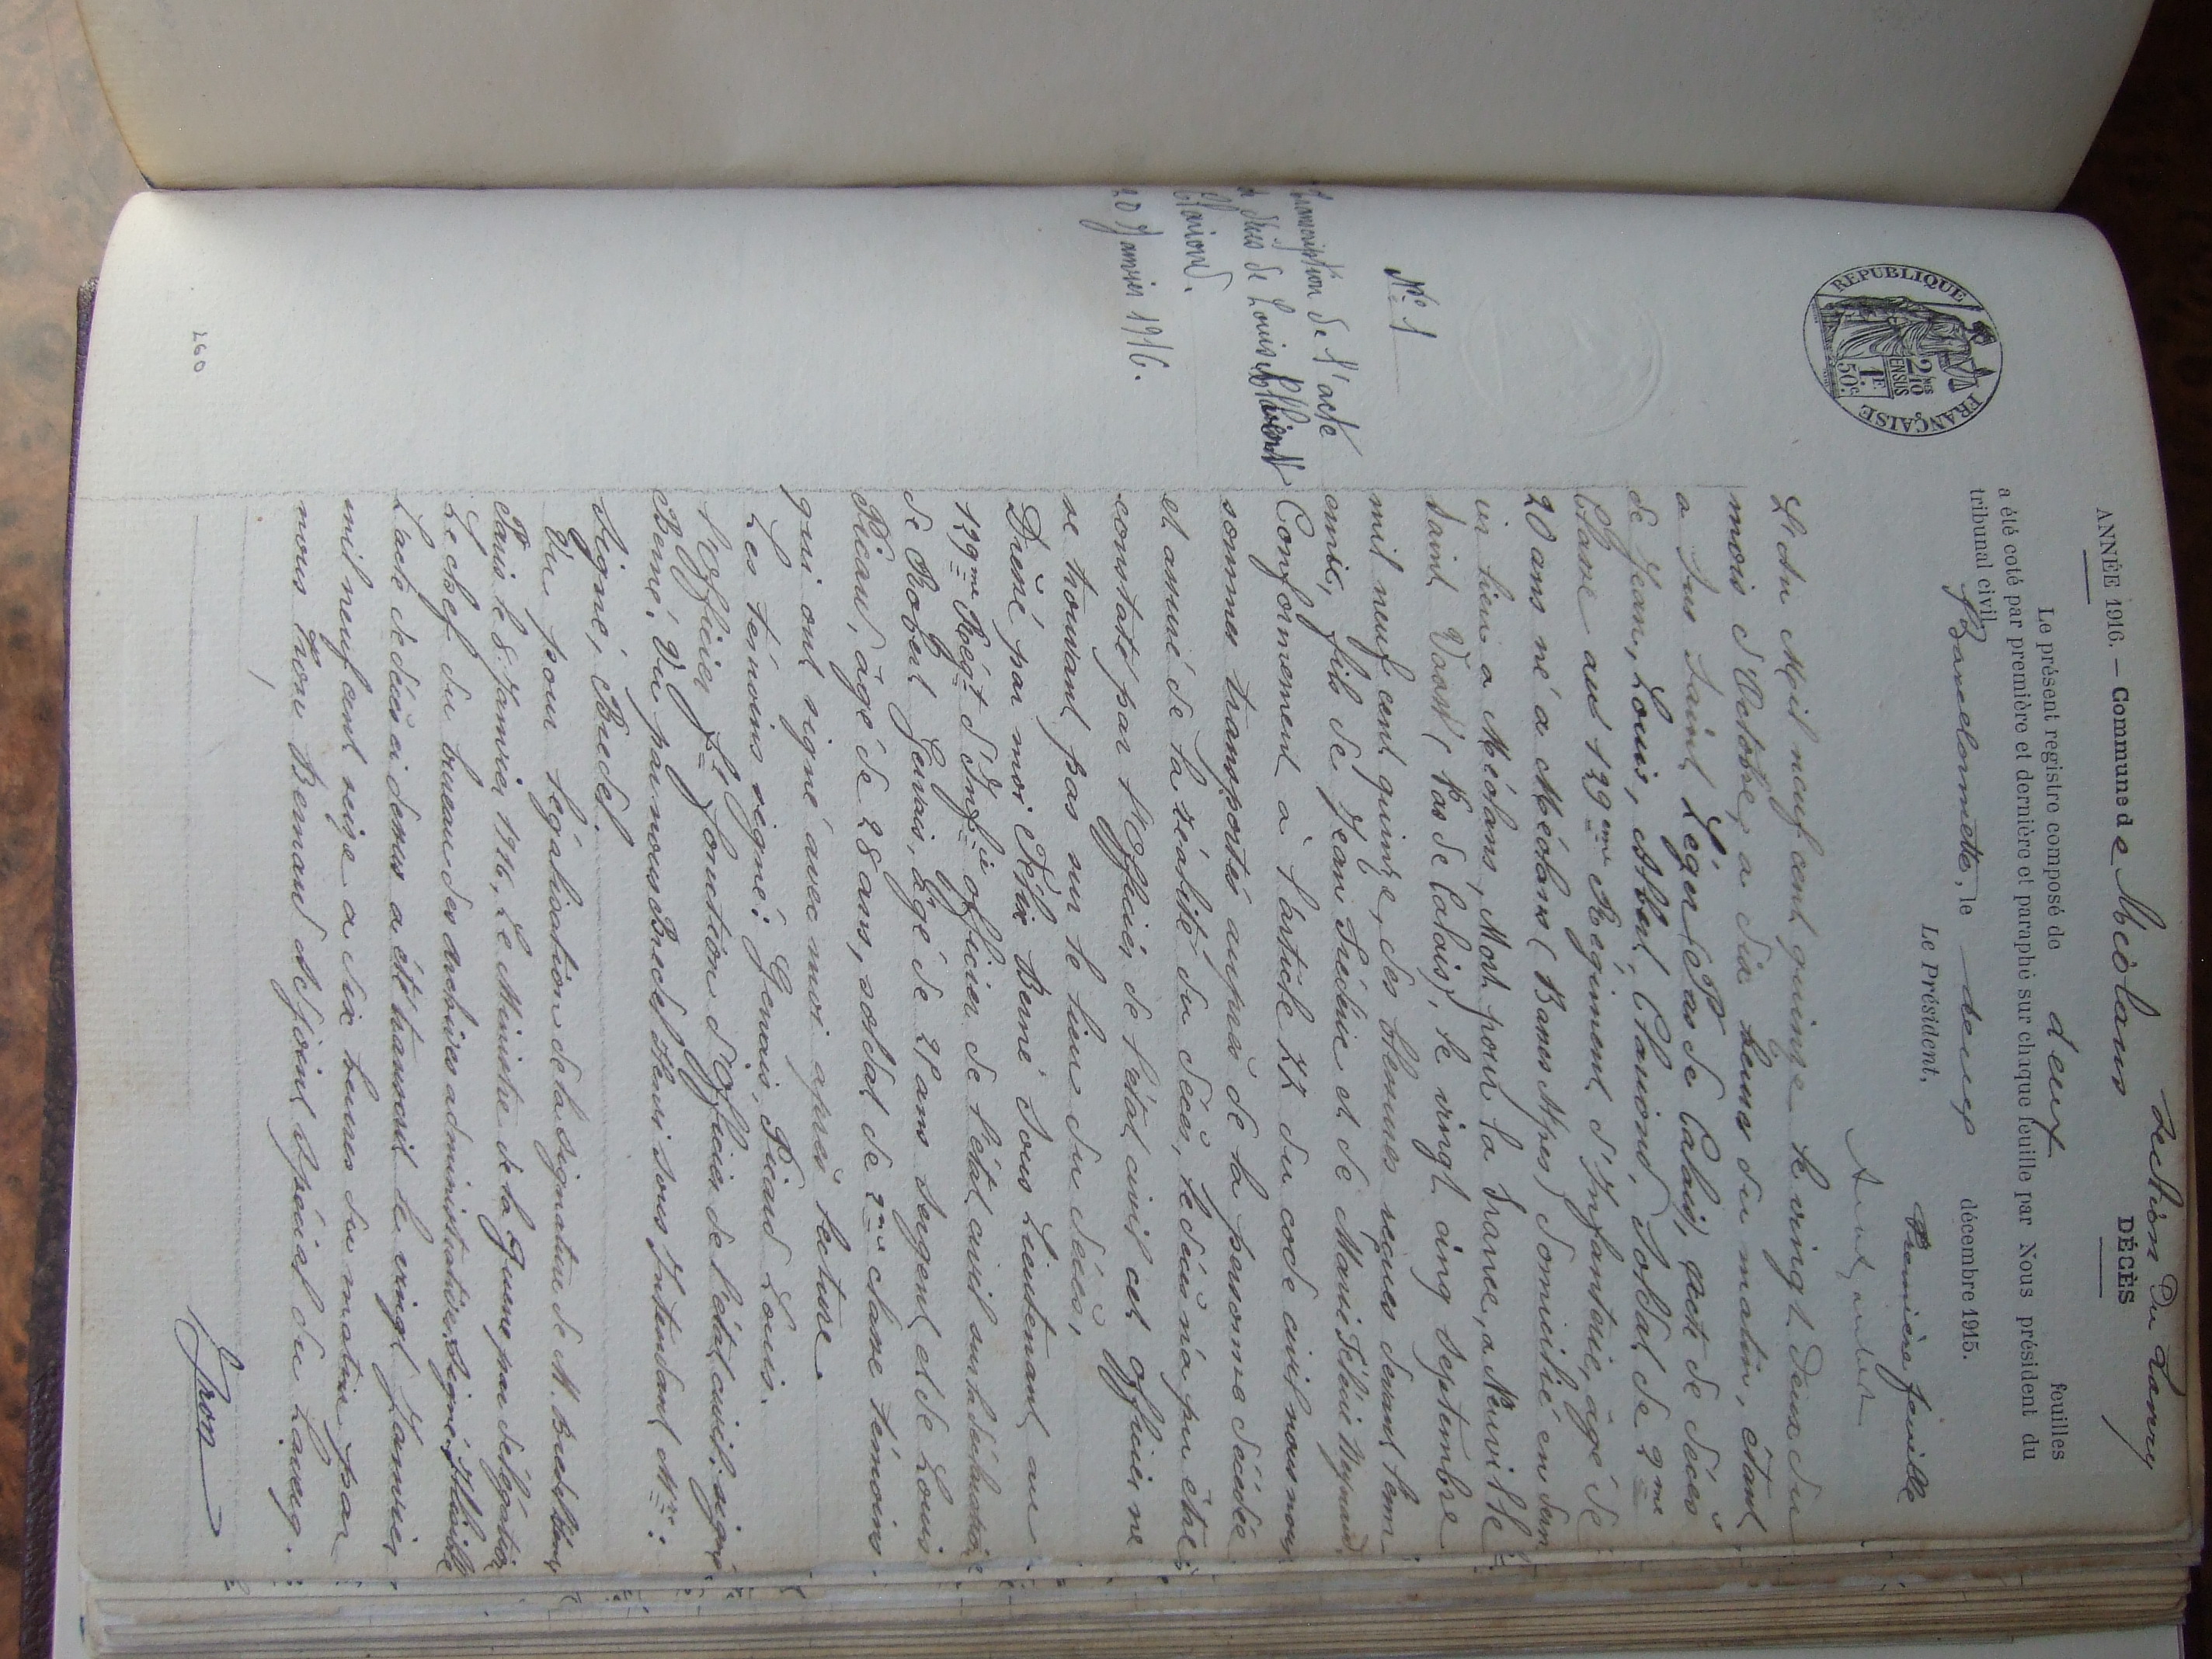 Section du Laverq
ANNÉE 1916. — Commune de Méolans DÉCÈS
Le présent registre composé de deux feuilles
a été coté par première et dernière et paraphé sur chaque feuille par Nous président du
tribunal civil
Barcelonnette, le deux décembre 1915.
Le Président,
Première feuille
REPUBLIQUE FRANÇAISE
2/10 EN SUS
1F. 50c.
N° 1
transcription de l'acte
de décès de Louis
Chaiond.
20 Janvier 1916.
L'An Mil neuf cent quinze le vingt deux du
mois d'Octobre, a dix heures du matin, étant
a Sus Saint Léger (Pas de Calais), acte de décès
de Jean, Louis, Abbel, Chaiond, Soldat de 2me
Classe au 129eme Régiment d'Infanterie, âgé de
20 ans né a Méolans (Basses Alpes) domicilié en dern
ier lieu a Méolans, Mort pour la France, a Neuville
Saint Vaast (Pas de Calais), le vingt cinq Septembre
mil neuf cent quinze, des blessures reçues devant l'enn
emis, fils de Jean Frédéric et de Marie
Conformement à l'article 77 du code civil nous nous
sommes transportés auprès de la personne décédée
et assuré de la réalité du décès, le décès n'a pu être
constaté par l'Officier de l'état civil cet officier ne
se trouvant pas sur le lieu du décès,
Dréssé par moi Félix Berné Sous Lieutenant au
129me Régt d'Infie officier de l'état civil sur la déclaration
de Robert Gervais, âgé de 21 ans Sergent et de Louis
Picard, âgé de 28 ans, soldat de 2me classe témoins
qui ont signé avec moi après lecture
Les témoins signé: Gervais, Picard Louis.
L'Officier ft fonction d'Officier de l'état civil: signé
Berné. Vu par nous Bredel Henri sous Intendant Mre:
Signé, Bredel.
Vu pour légalisation de la signature de M. Bredel
Paris le 8 Janvier 1916, Le Ministre de la Guerre par délégation
Le chef du bureau des archives administratives Signé:
L'acte de décès ci dessus a été transcrit le vingt Janvier
mil neuf cent seize a dix heures du matin par
nous Tron Bernard Adjoint Spécial du Laverq.
Tron
260